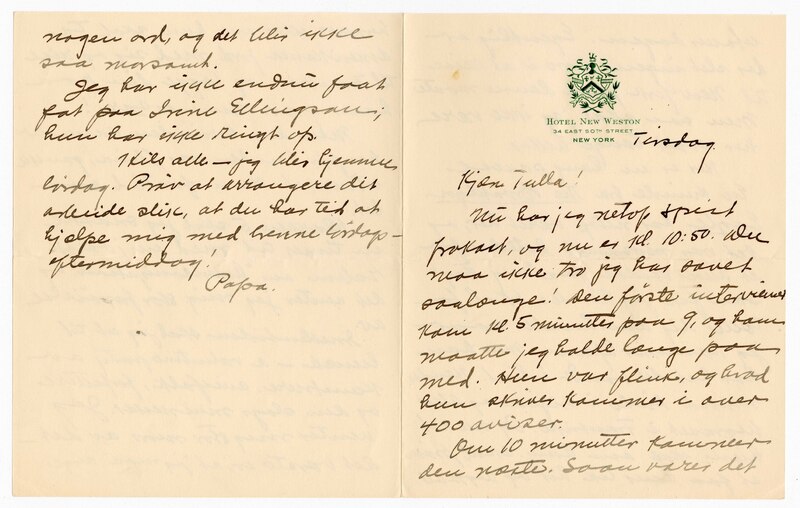 nogen ord, og det blir ikke
saa morsomt.
Jeg har ikke endnu faat
fat paa Irine Ellingson;
hun har ikke ringt op.
Hils alle – jeg blir hjemme
lördag. Pröv at arrangere dit
arbeide slik, at du har tid at
hjelpe mig med henne lördag-
eftermiddag!
Papa.
HOTEL NEW WESTON
34 EAST 50TH STREET
NEW YORK
Tirsdag
Kjære Tulla!
Nu har jeg netop spist
frokost, og nu er kl. 10:50. Du
maa ikke tro jeg har sovet
saalænge! Den förste interviewer
kom kl. 5 minutter paa 9, og ham
maatte jeg holde længe paa
med. Hun var flink, og hvad
hun skriver kommer i over
400 aviser.
Om 10 minutter kommer
den næste. Saan varer det